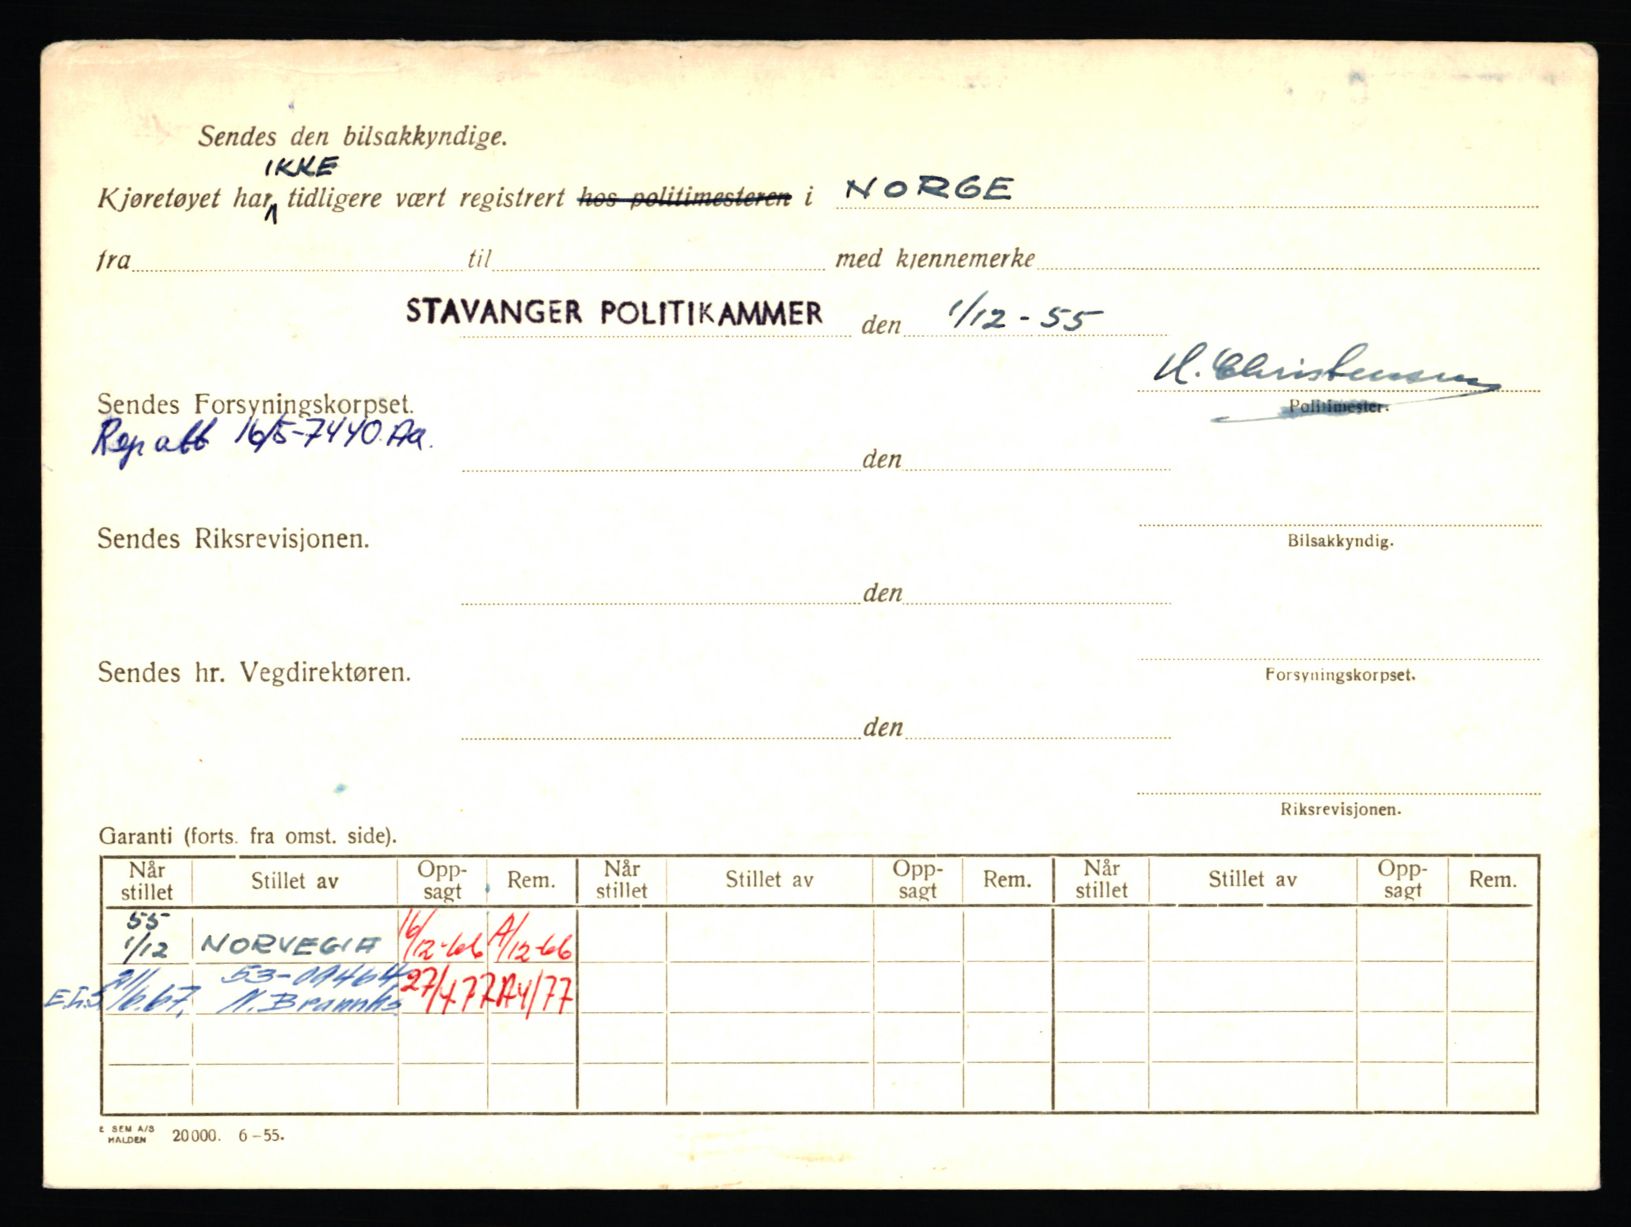 Sendes den bilsakkyndige.
IKKE
Kjøretøyet har tidligere vært registrert hos politimesteren i NORGE
fra til med kjennemerke
STAVANGER POLITIKAMMER den 1/12-55
H. Christensen
Sendes Forsyningskorpset. Politimester.
16/5-7440 Aa.
den
Sendes Riksrevisjonen. Bilsakkyndig.
den
Sendes hr. Vegdirektøren. Forsyningskorpset.
den
Riksrevisjonen.
Garanti (forts. fra omst. side).
Når stillet Stillet av Opp-sagt Rem. Når stillet Stillet av Opp-sagt Rem. Når stillet Stillet av Opp-sagt Rem.
55
1/12 NORVEGIA 16/12-66 A/12-66
27/4 77 A4/77
E SEM A/S
HALDEN 20000. 6-55.